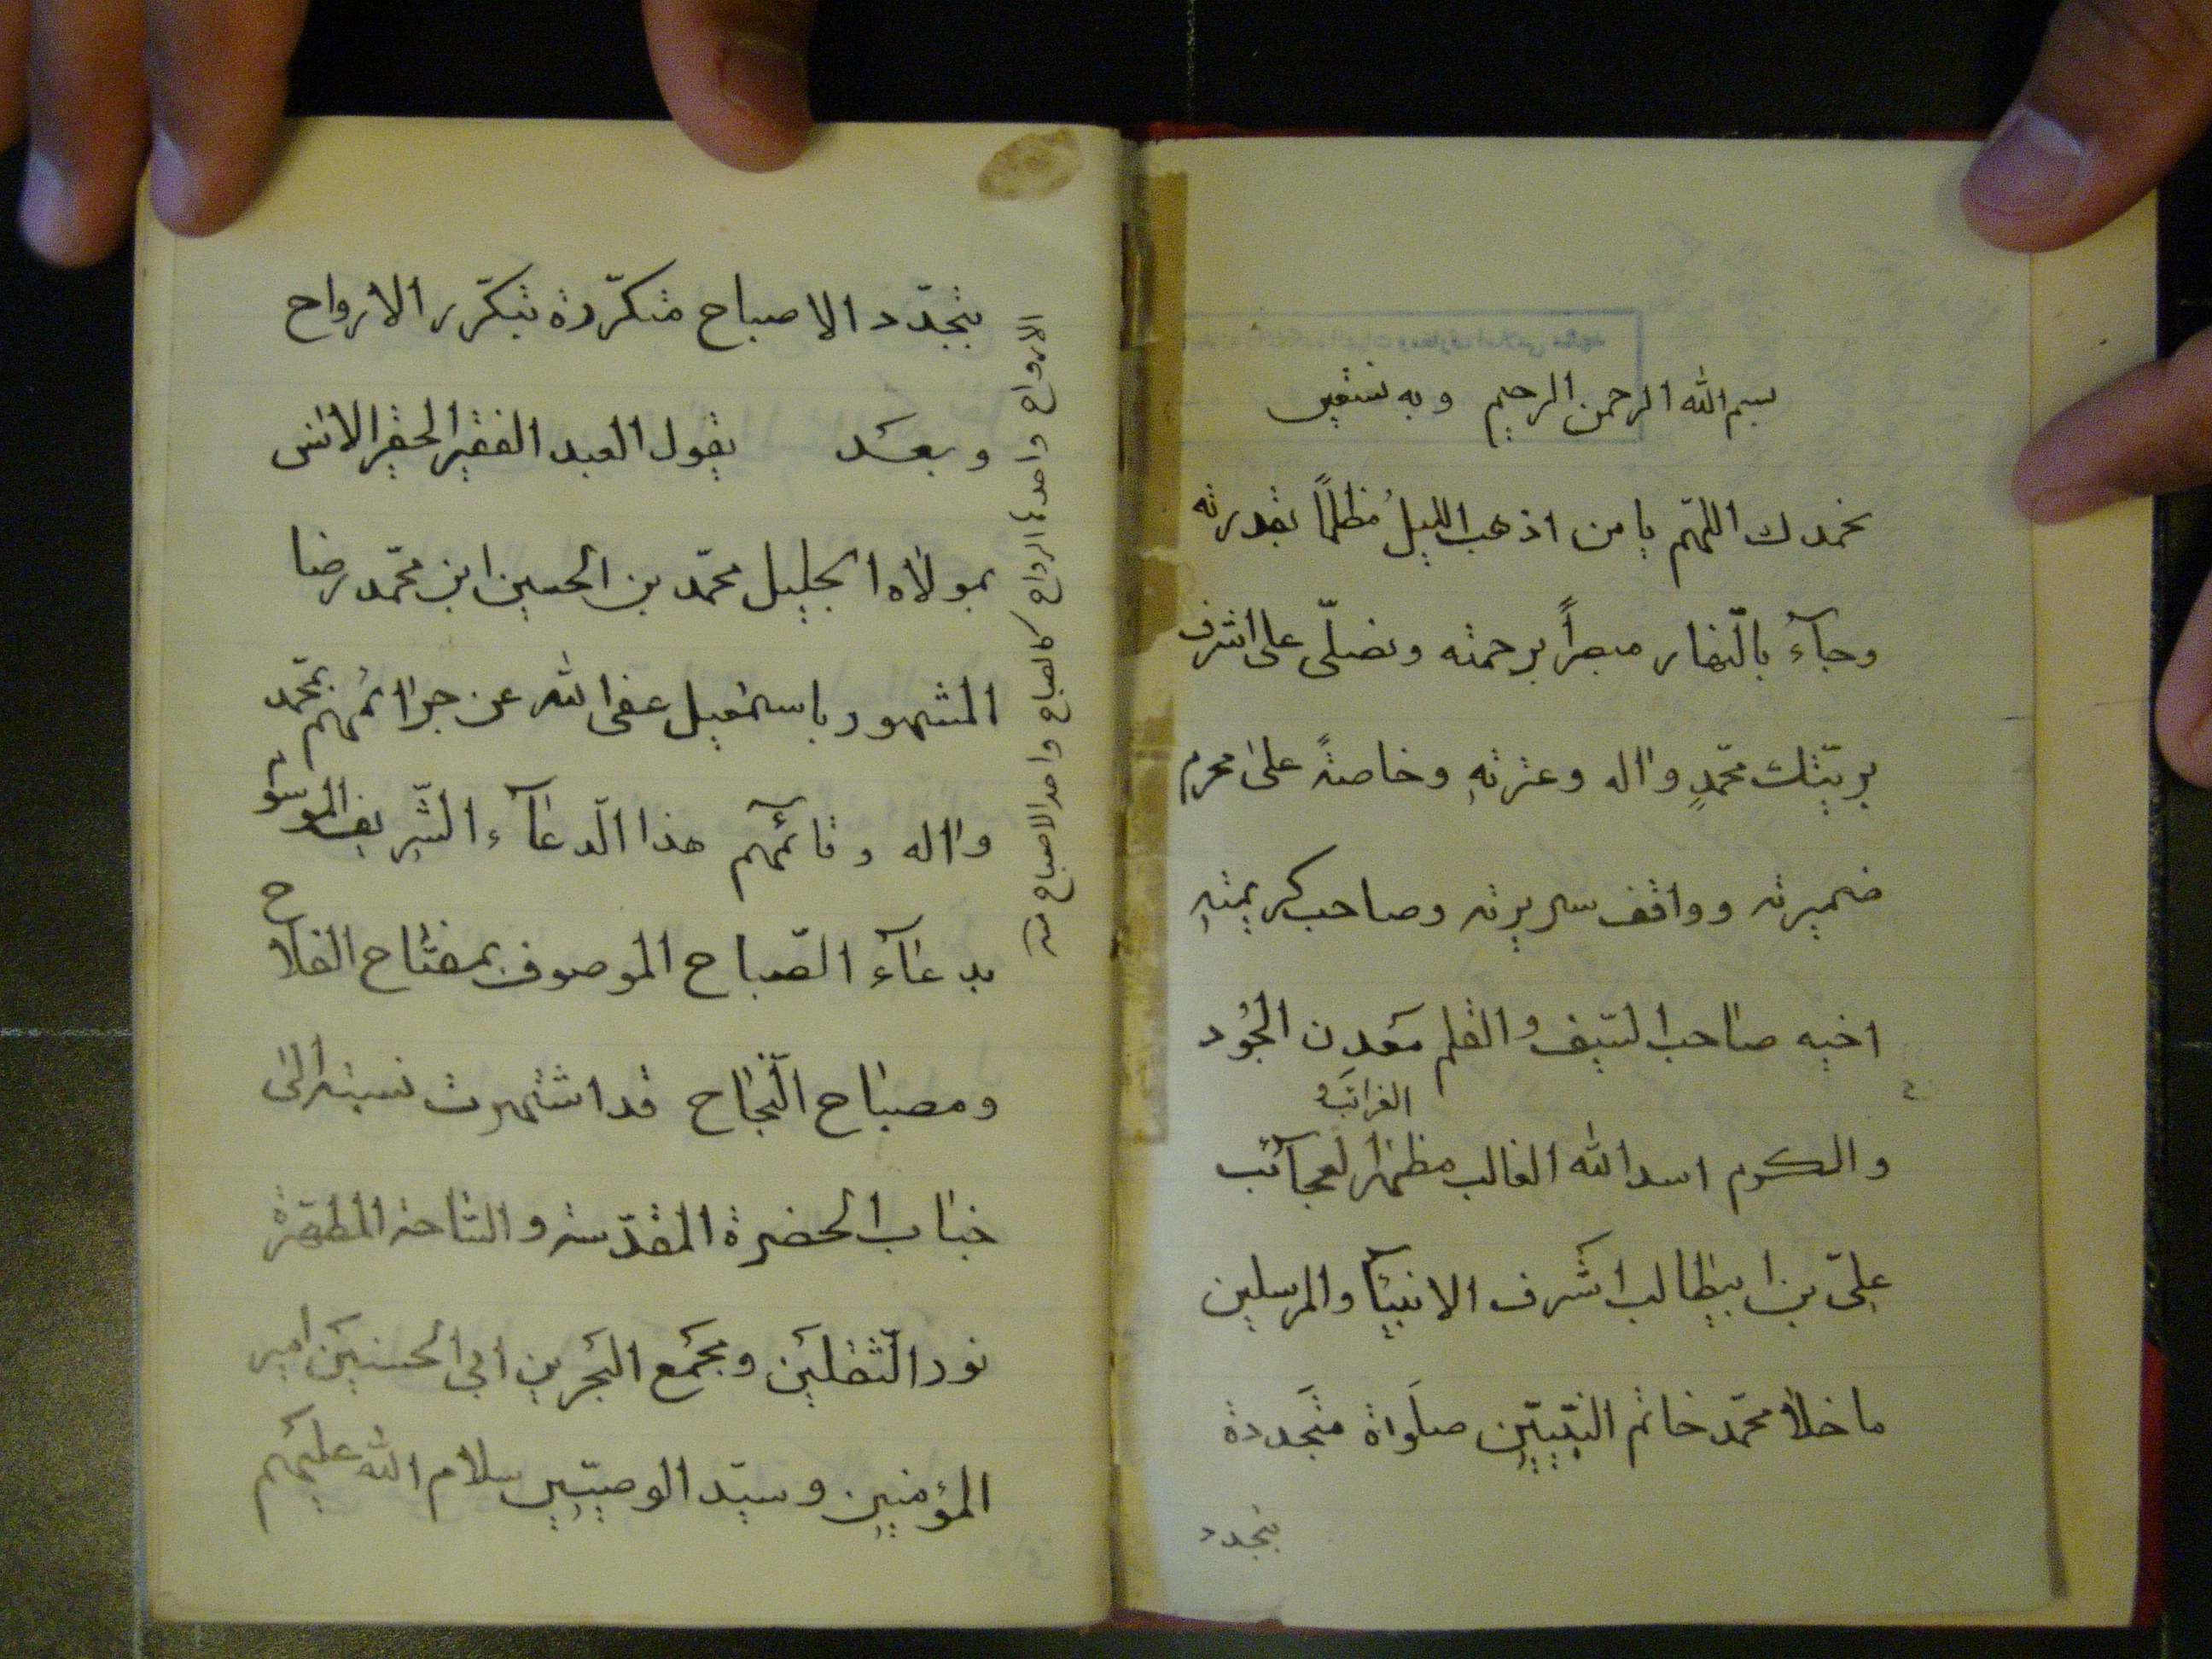 بسم الله الرحمن الرحيم وبه نستعين
نحمدك اللهّم يا من اذهب الليلُ مظلمًا بقدرته
وجآء بالنّهار مبصراً برحمته ونصلّى على اشرف
بريّتك محمّدٍ واله وعترتهِ وخاصةً على محرم
ضميرته وواقف سريرته وصاحب كريمتهِ
اخيه صاحب السّيف والقلم معدن الجُود
والكرم اسد الله الغالب مظهر العجآئب
والغرائب
علىّ بن ابيطالب اشرف الانبيآء والمرسلين
ما خلا محمّد خاتم النبيّين صلَواة متجَددة
بتجدد
بتجدّد الاصباح متكرّرة بتكرّر الارواح
وبعد يقول العبد الفقير الحقير الانس
بمولاه الجليل محمّد بن الحسين ابن محمّد رضا
المشهور باسمعيل عفى الله عن جرائمهم بمحمّد
واله وقائمهم هذا الدّعآء الشّريف الموسوم
بدعآء الصّباح الموصوف بمفتاح الفلاح
ومصباح النّجاح قد اشتهرت نسبته الى
جناب الحضرة المقدّسة والسّاحة المطهّرة
نور الثّقلين ومجمع البحرين ابى الحسنين امير
المؤمنين وسيّد الوصيّين سلام الله عليهم
الارواح واحدها الرواح كالصباح واحد الاصباح منه